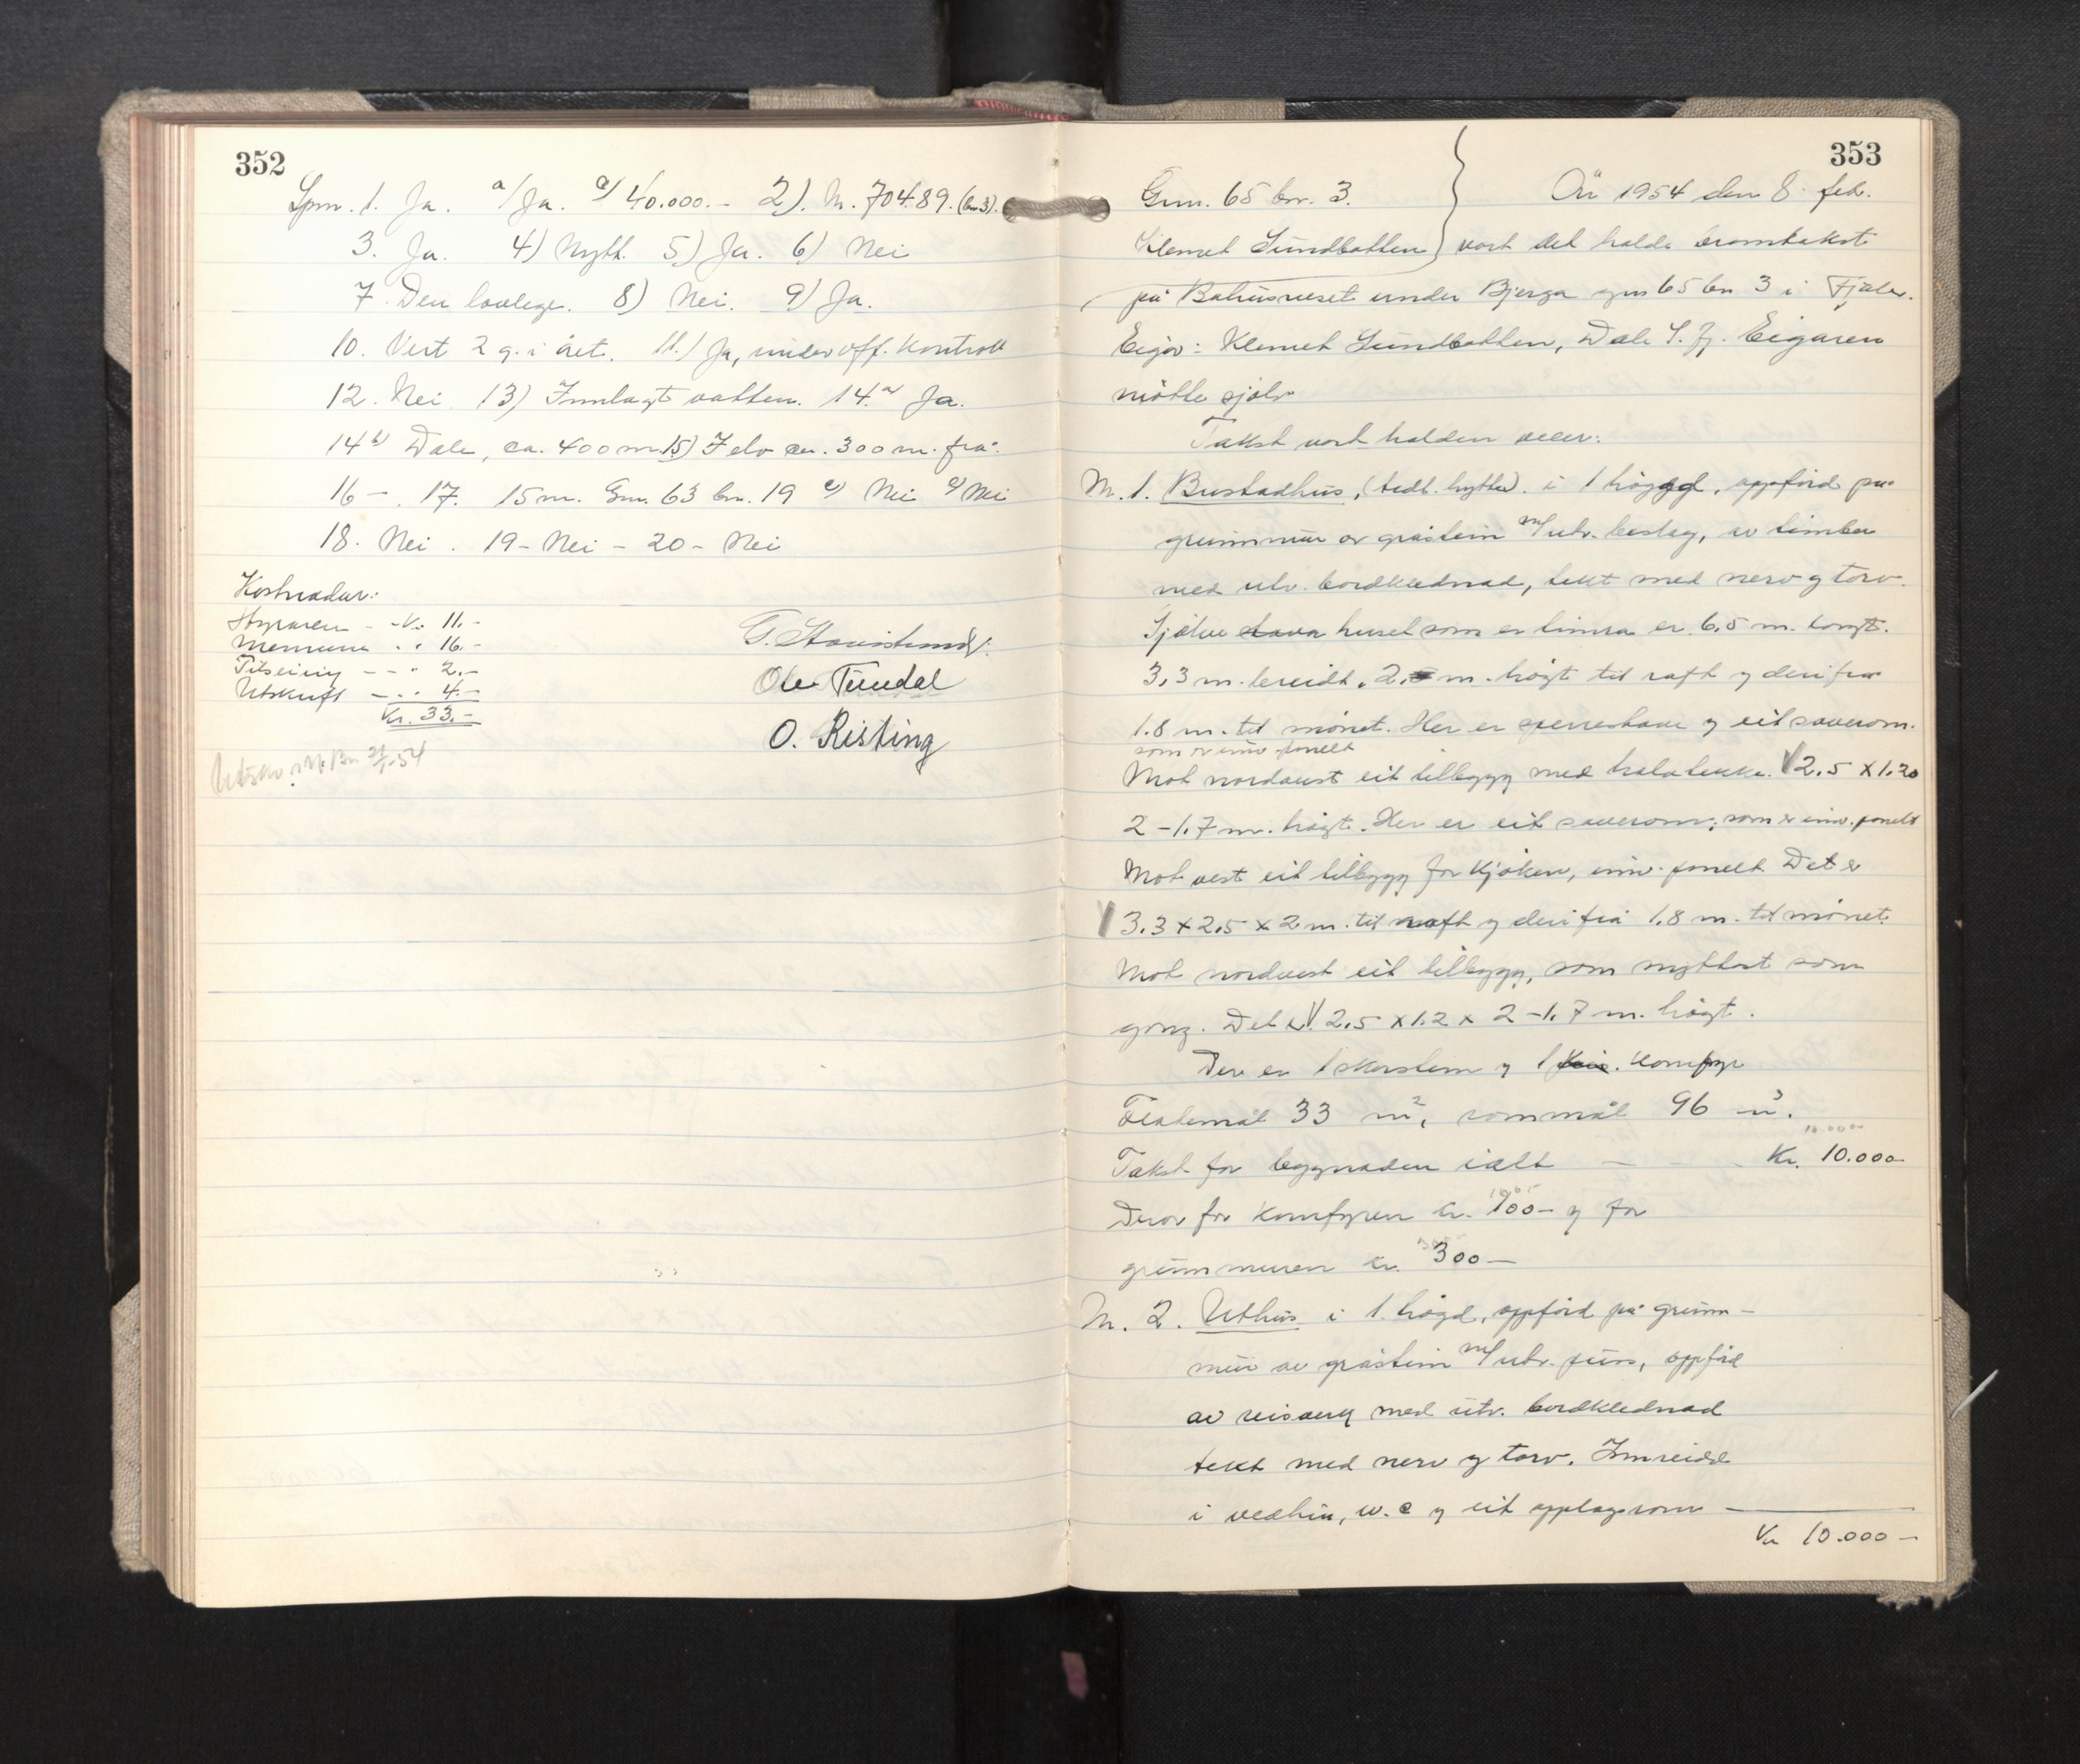 352
Spm. 1. Ja. a/ Ja. a/ 40.000.- 2). Nr. 70489. (bn 3).
3. Ja. 4) Nytt. 5) Ja. 6) Nei
7. Den lovlege. 8) Nei. 9) Ja.
10. Vert 2 g. i året. 11.) Ja, under off. kontroll
12. Nei 13) Innlagt vatten. 14.a Ja.
14 b) Dale, ca. 400 m. 15) I elv ca. 300 m. frå.
16 - . 17. 15 m. Gnr. 63 bnr. 19 Nei Nei
18. Nei. 19 - Nei - 20 - Nei
Kostnadur:
Styraren - - Kr. 11.-
Mennene " " 16.-
Tilseiing - - " 2.-
Utskrift - . . 4.-
Kr. 33.-
Ole Tundal
O. Risting
353
Gnr. 65 bnr. 3.
Klemet Sundbotten
År 1954 den 8. feb.
vart det halde branntakst
på Bøhusneset under Bjerga gnr 65 bn 3 i Fjaler.
Eigar: Klemet Sundbotten, Dale S. Fj. Eigaren
møtte sjølv
Takst vart halden over:
Nr. 1. Bustadhus, (tedl. hytte). i 1 høggd, oppførd på
grunnmur av gråstein m/ utv. beslag, av timber
med utv. bordklednad, tekt med nevr og torv.
Sjølve stova huset som er timra er 6,5 m. langt.
3,3 m. breidt, 2, m. høgt til raft og derifrå
1.8 m. til mønet. Her er sperrestove og eit soverom.
som er innv. panelt
Mot nordaust eit tilbygg med halvtekke. 2,5 x 1,20
2 - 1,7 m. høgt. Her er eit soverom, som er innv. panelt
Mot vest eit tilbygg for kjøken, innv. panelt. Det er
3.3 x 2,5 x 2 m. til raft og derifrå 1.8 m. til mønet.
Mot nordvest eit tilbygg, som nyttast som
gang. Det er 2,5 x 1.2 x 2 - 1.7 m. høgt.
Der er 1 skorstein og 1 komfyr
Flatemål 33 m², rommål 96 m³.
10.000
Takst for bygnaden ialt - - - Kr. 10.000
Derav for komfyren kr. 100- og for
grunnmuren kr. 300 -
Nr. 2. Uthus i 1. høgd, oppførd på grunn-
mur av gråstein m/ utv. puss, oppførd
av reisverk med utv. bordklednad
tekt med nevr og torv. Innreidd
i vedhus, w.c og eit opplagsrom
Kr 10.000 -